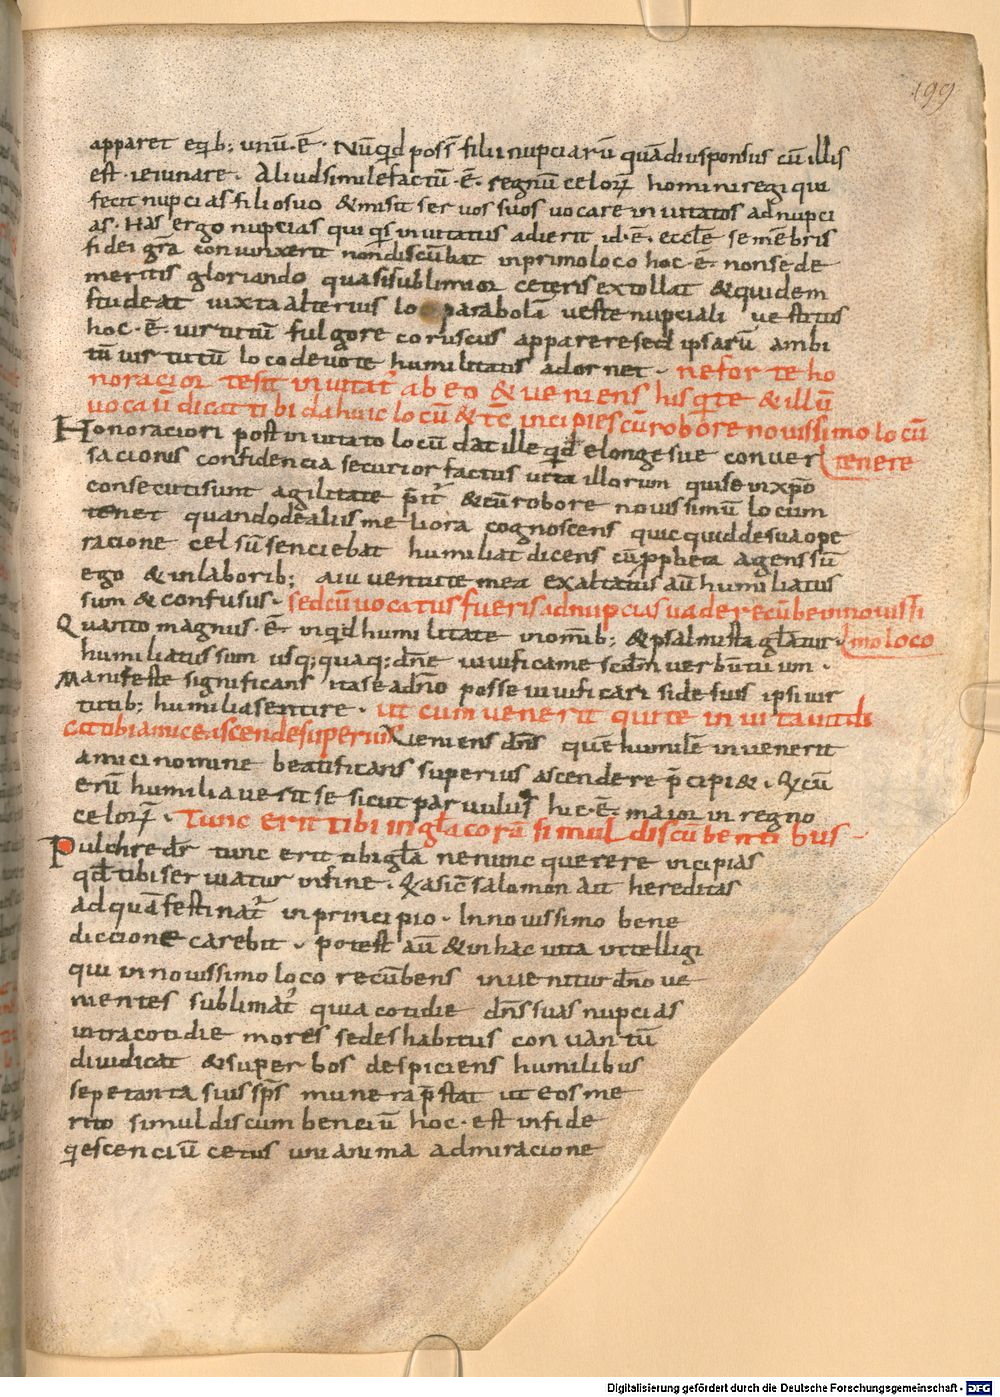 199
apparet eqib; unū·ē· Nūqid poss̄ filii nupciarū quādiu sponsus cū illis
est ieiunare· Aliud simile factū·ē· regnū celorꝝ homini regi qui
fecit nupcias filio suo & misit seruos suos uocare inuitatos ad nupci
as· Has ergo nupcias qui q̄s inuitatus adierit id·ē· eccl̄e se mēbris
fidei gr̄a conuinxerit non discūbat in primo loco hoc·ē· non se de
meritis gloriando quasi sublimior ceteris extollat & quidem
studeat iuxta alterius lo parabolā ueste nupciali uestitus
hoc·ē· uirtutū fulgore coruscus apparere sed ipsarū ambi
tū uirtutū loco deuote humilitatis adornet· ne forte ho
noracior te sit inuitat᷒ ab eo & ueniens his q̄ te & illū
uocauı̄ dicat tibi da huic locū & tc̄ incipies cū robore nouissimo locū
Honoraciori post inuitato locū dat ille qd̄ elonge sue conuer tenere
sacionis confidencia securior factus uita illorum qui se in xp̄o
consecuti sunt agilitate p̄it᷒ & cū robore nouissimū locum
tenet quando de aliis meliora cognoscens quicquid de sua ope
racione celsū senciebat humiliat dicens cū ꝓpheta agens sū
ego & in laborib; a iuuentute mea exaltatus aū humiliatus
sum & confusus· sed cū uocatus fueris ad nupcias uade recūbe in nouissi
Quanto magnus·ē· inqid humilitate in omīb; & psalmista gl̄atur· mo loco
humiliatus sum usq; quaq; dn̄e uiuifica me scdm̄ uerbū tuum·
Manifeste significans ita se ad dn̄o posse uiuificari si de suis ipsi uir
tutib; humilia sentire· ut cum uenerit qui te inuitauit di
cat tibi amice ascende superius Veniens dn̄s quē humilē inuenerit
amici nomine beatificans superius ascendere p̄cipi&· Qicū
erū humiliauerit se sicut paruulus hic·ē· maior in regno
celorꝝ· Tunc erit tibi in gl̄a corā simul discubentibus·
Pulchre dr̄ tunc erit tibi gl̄a ne nunc querere incipias
qd̄ tibi seruatur in fine· Qia sic̄ salomon ait hereditas
ad quā festinat᷒ in principio· In nouissimo bene
diccione carebit· potest aū & in hac uita intelligi
qui in nouissimo loco recūbens inuenitur dn̄o ue
nientes sublimat᷒ quia cotidie dn̄s suas nupcias
intra cotidie mores sedes habitus conuantū
diuidicat & superbos despiciens humilibus
sepe tanta sui sp̄s munera p̄stat ut eos me
rito simul discumbenciū hoc·est in fide
qiescenciū cetus unianima admiracione
Digitalisierung gefördert durch die Deutsche Forschungsgemeinschaft - DFG